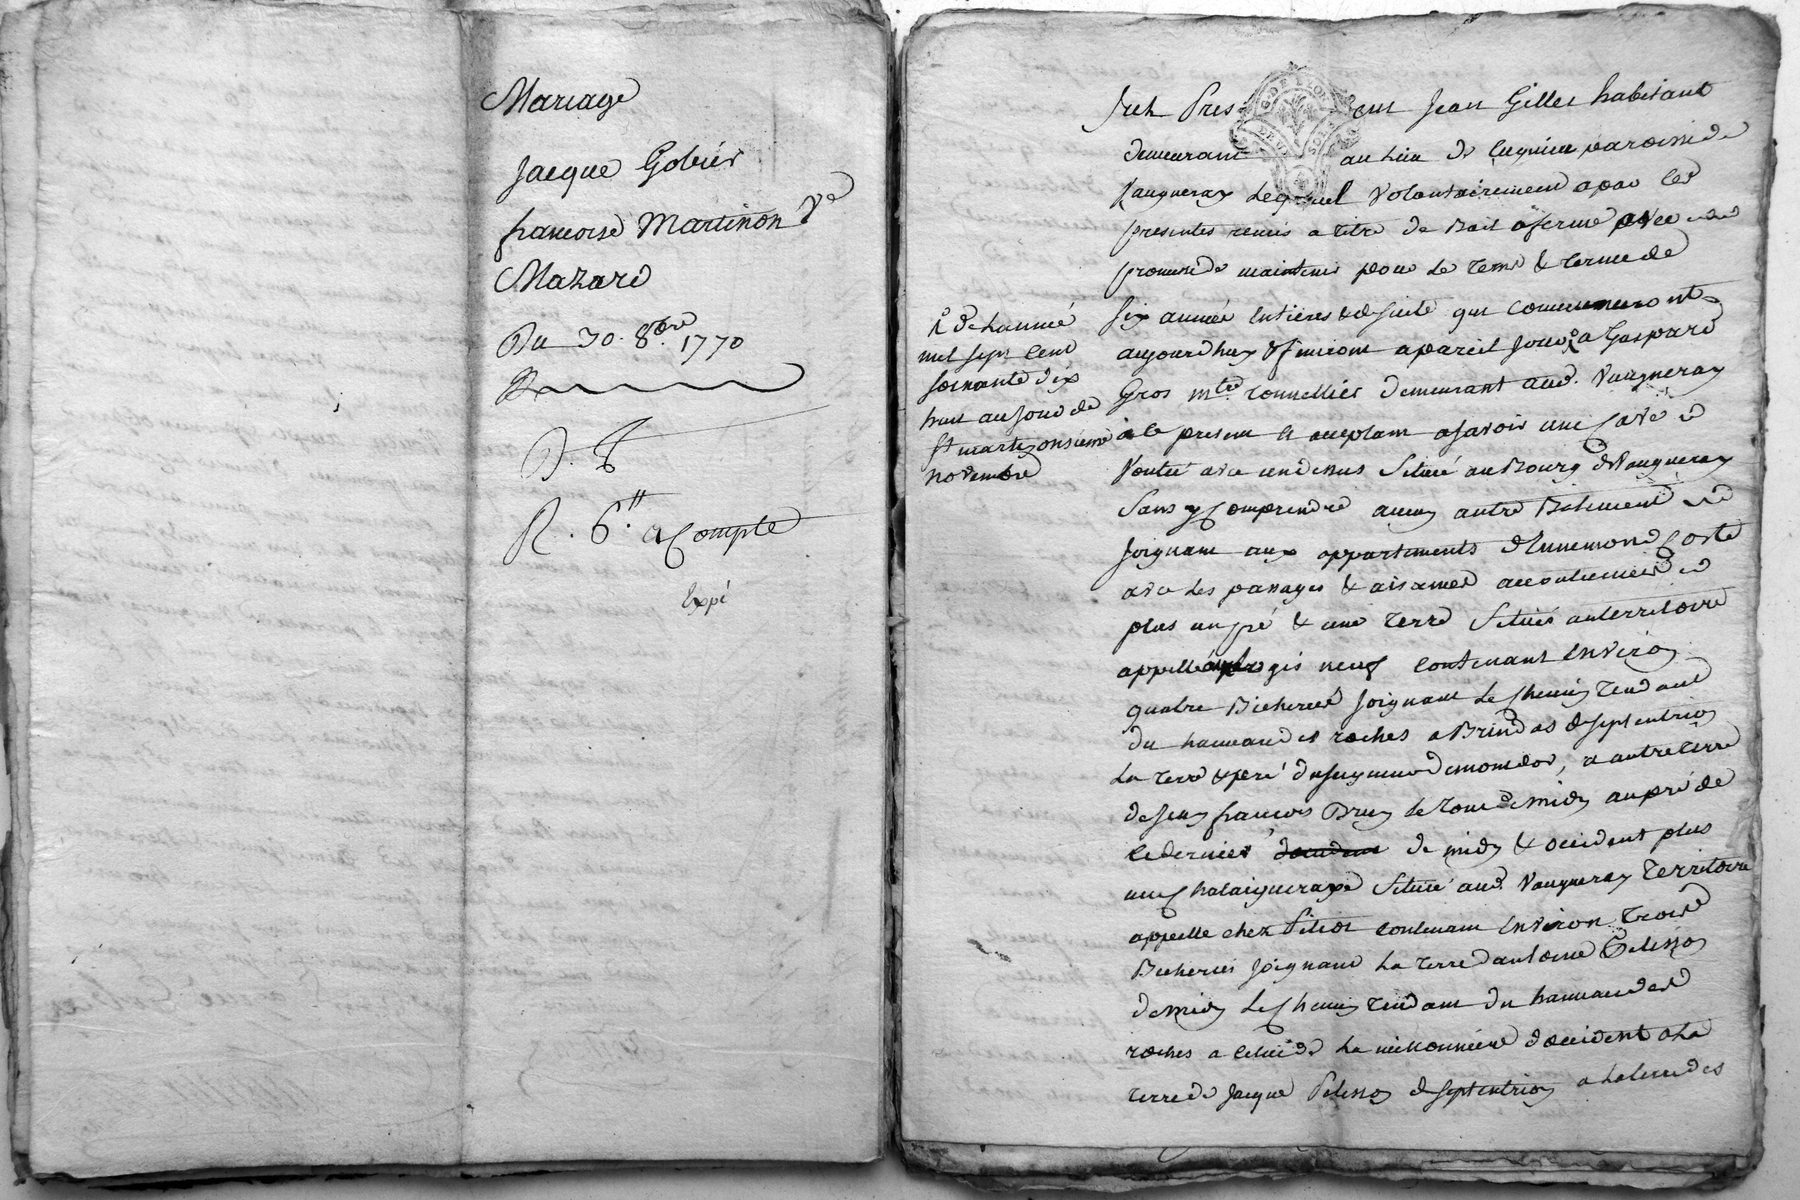 Mariage
Jacque Gobier
francoise Martinon Ve
Mazard
Du 30. 8bre. 1770
R. 6.ll a Compte
Expé
fut Pres ent Jean Gilles habitant
demeurant au Lieu de paroisse de
Vaugneray Lequel volontairement a par les
presentes remis a titre de Bail a ferme avec
promesse de maintenir pour Le tems & terme de
Six année entieres & de suitte qui commenceront
aujourdhuy & finiront a pareil jour a Gaspard
Gros mtre. tonnellier demeurant aud. Vaugneray
a ce present & acceptant asavoir une Cave
voutée avec un dessus Situé au Bourg de Vaugneray
Sans y Comprendre aucun autre Batiment
joignant aux appartements d'Ennemond Coste
avec Les passages & aisances accoutumées
plus un pré & une terre Situés au territoire
appellé logis neuf contenant Environ
quatre Bicherées joignant Le Chemin tendant
du hameau des roches a Brindas de septentrion
La terre & pré du seigneur de , a autre terre
de Jean françois Brun de midy au pré de
ce dernier de midy & occident plus
une Chataigneraye Située aud. Vaugneray territoire
appellé chez Pitiot contenant Environ trois
Bicherées joignant La terre d'antoine Pelisson
de midy Le Chemin tendant du hameau des
roches a celui de La d'occident a La
terre de Jacque Pelisson de septentrion a La terre des
de L'année
mil sept Cent
soixante dix
huit au jour de
St. martin onsieme
novembre